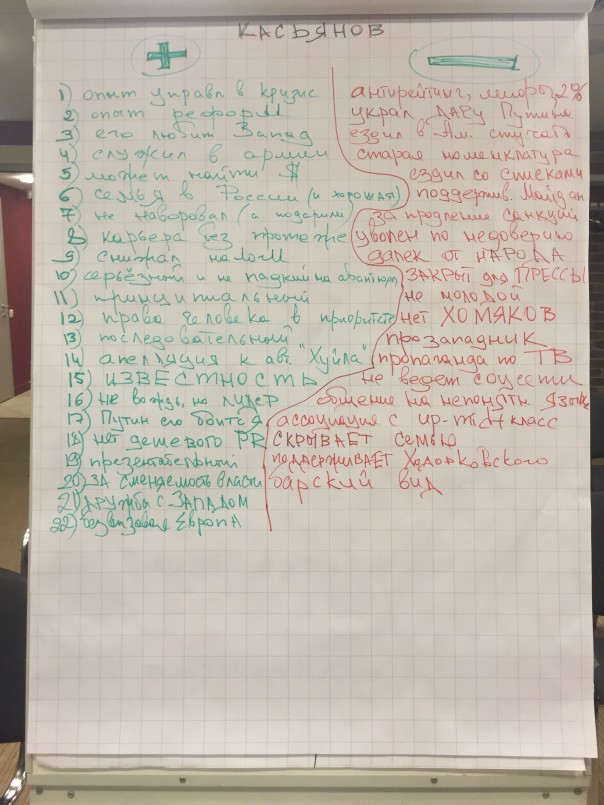 КАСЬЯНОВ
+ —
1) опыт управл в кризис
2) опыт реформ
3) его любит Запад
4) служил в армии
5) может найти $
6) семья в России (и хорошая)
7) не наворовал (а подарили)
8) карьера без протеже
9) снижал налоги
10) серьёзный и не падкий на
11) принципиальный
12) права человека в приоритете
13) последовательный
14) апелляция к авт "Хуйла"
15) ИЗВЕСТНОСТЬ
16) не вождь, но лидер
17) Путин его боится
18) нет дешевого PR
19) презентабельный
20) ЗА сменяемость власти
21) ДРУЖБА С ЗАПАДОМ
22) безвизовая ЕвропА
антирейтинг, 2%
украл ДАЧУ Путина
ездил в Ам.
старая номенклатура
ездил со списками
поддержив. Майдан
за продление санкций
уволен по недоверию
далек от НАРОДА
ЗАКРЫТ для ПРЕССЫ
не молодой
нет ХОМЯКОВ
прозападник
пропаганда по ТВ
не ведет соцсети
общение на непонятн. языке
ассоциация с up-midd класс
СКРЫВАЕТ семью
ПОДДЕРЖИВАЕТ Ходорковского
барский вид